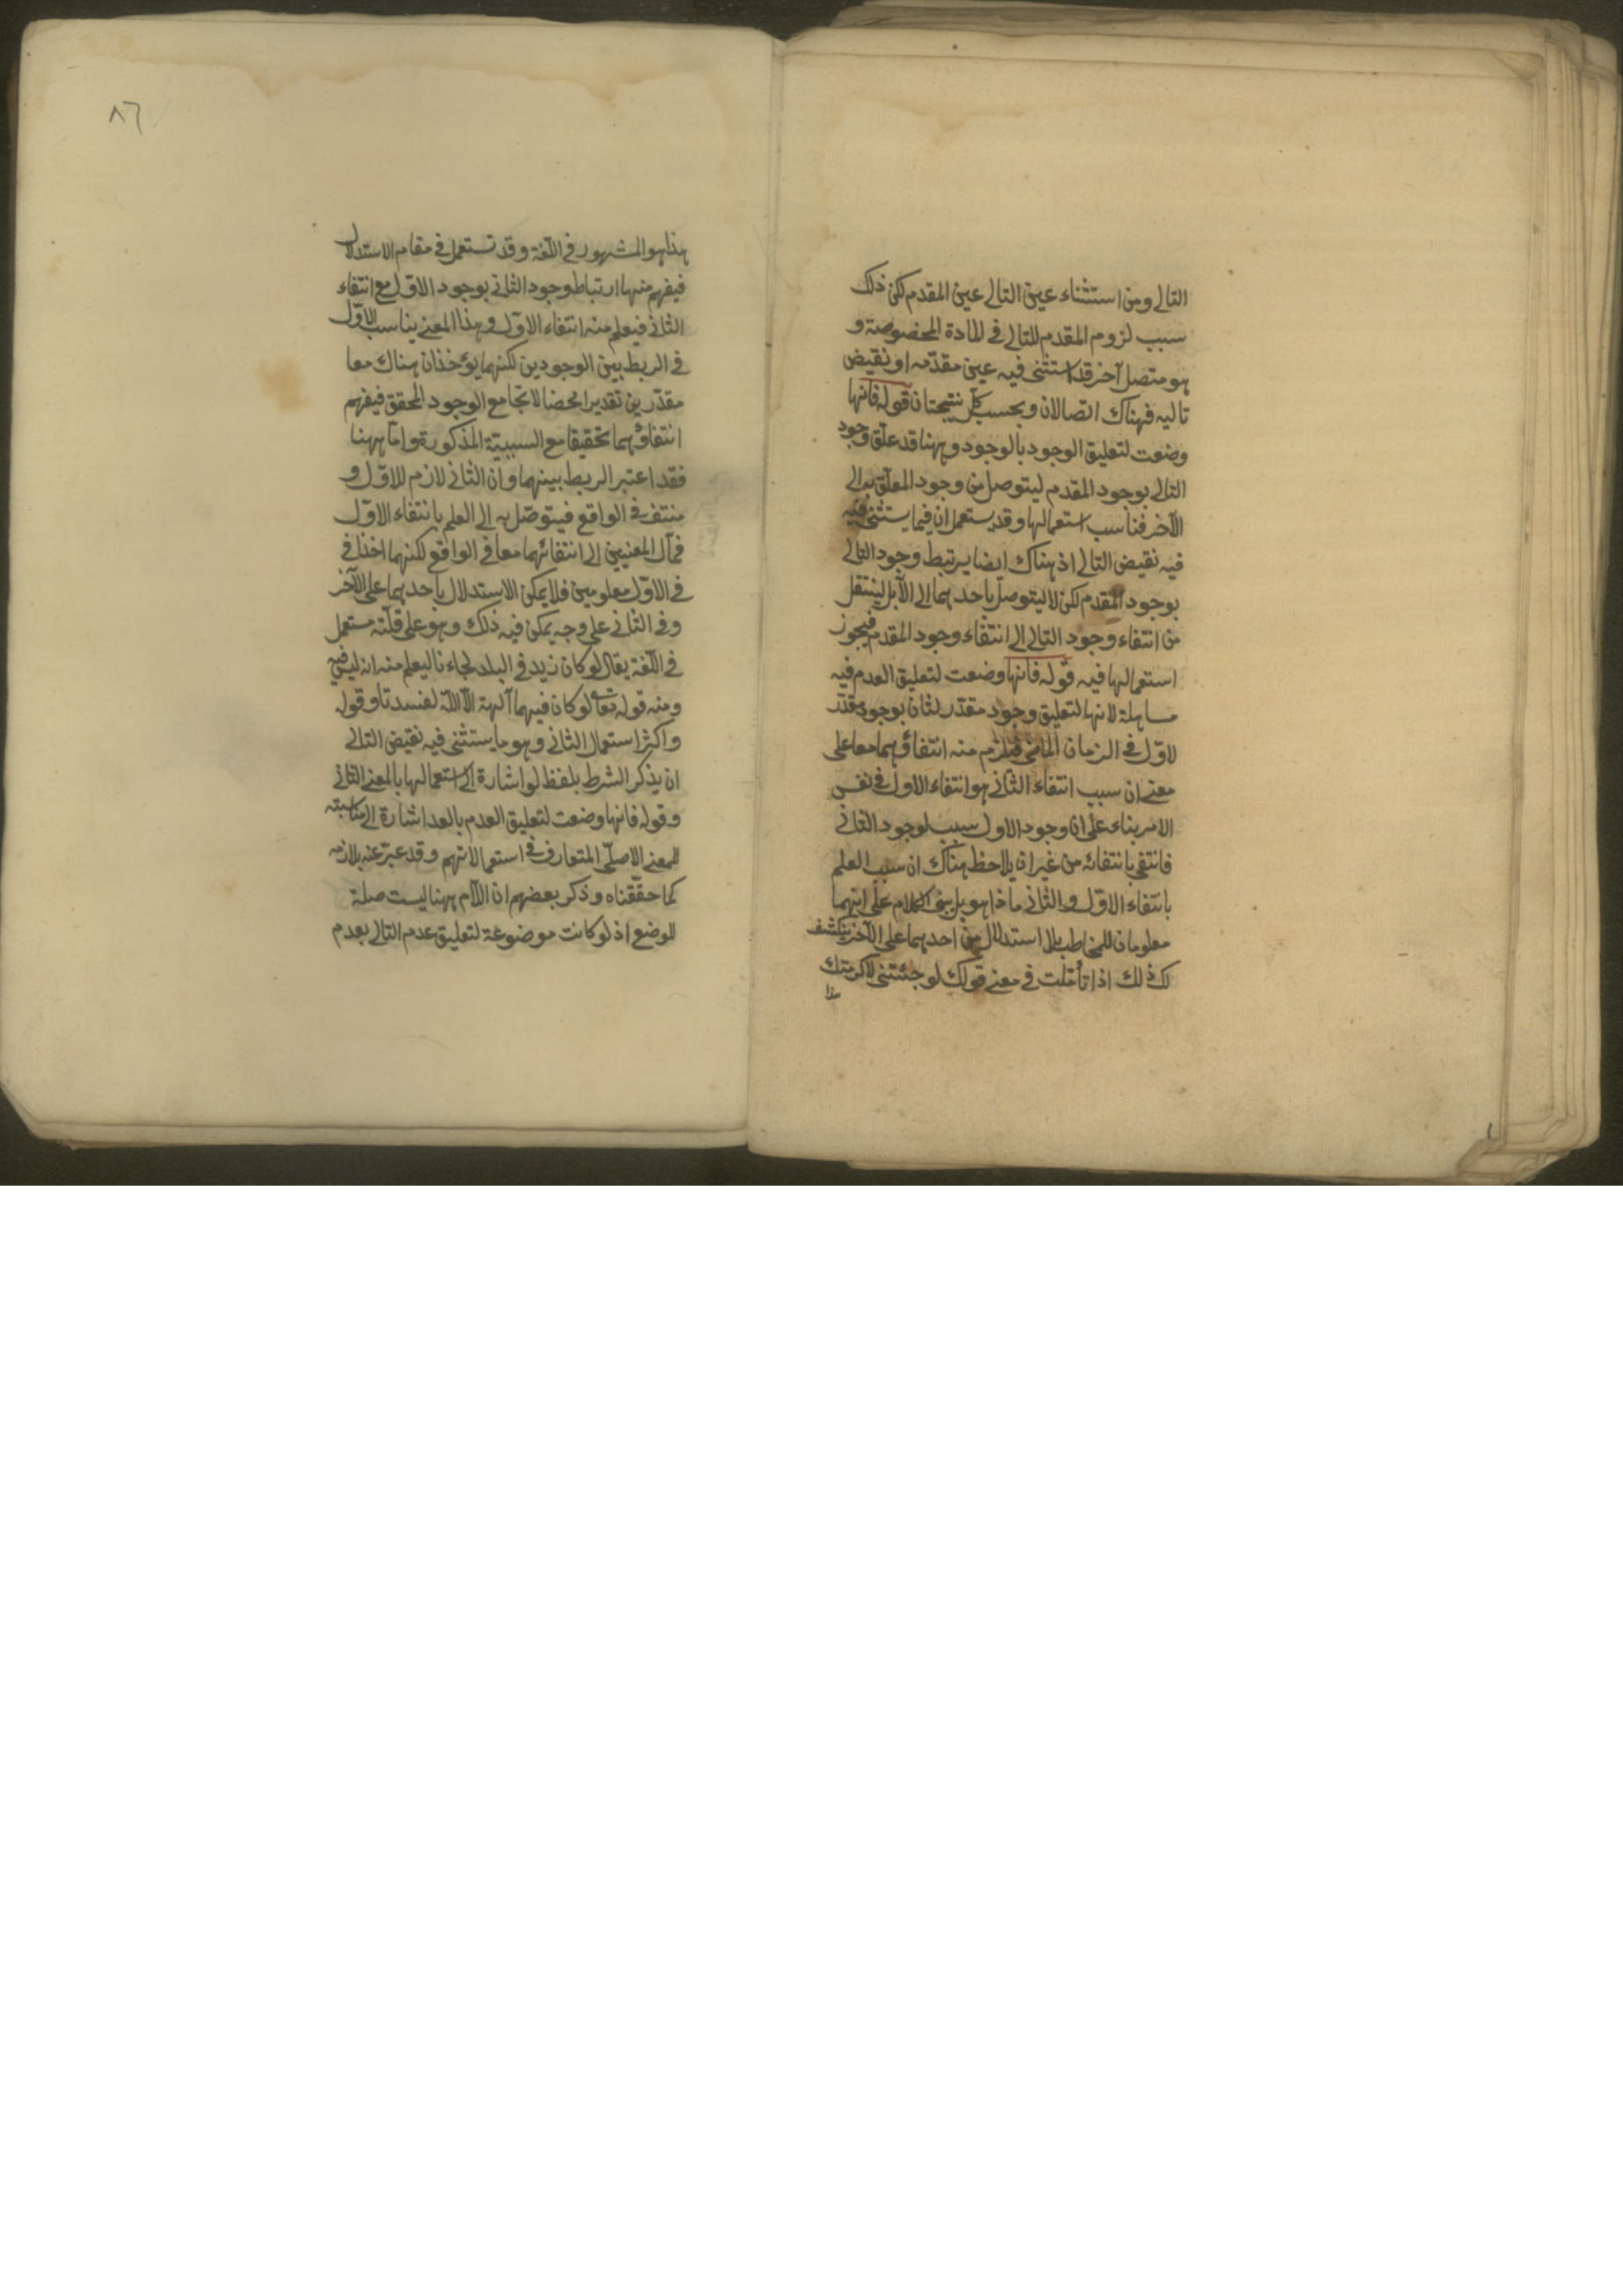 التالى ومن استثناء عين التالى عين المقدم لكن ذلك
سبب لزوم المقدم للتالى فى المادة المخصوصة و
هو متصل آخر قد استثنى فيه عين مقدّمه او نقيض
تاليه فهناك اتصالان وبحسب كل نتيجتان قوله فانها
وضعت لتعليق الوجود بالوجود وههنا قد علّق وجود
التالى بوجود المقدم ليتوصل من وجود المعلّق به الى
الآخر فناسب استعمالها وقد يستعمل ان فيما يستثنى فيه
فيه نقيض التالى اذ هناك ايضا يرتبط وجود التالى
بوجود المقدم لكن لا ليتوصل باحدهما الى الآ بل لينتقل
من انتفاء وجود التالى الى انتفاء وجود المقدم فيجوز
استعمالها فيه قوله فانها وضعت لتعليق العدم فيه
مساهلة لانها لتعليق وجود مقدّر لثان بوجود مقدّر
لاوّل فى الزمان الماضى فيلزم منه انتفاؤهما معا على
معنى ان سبب انتفاء الثانى هو انتفاء الاول فى نفس
الامر بناء على ان وجود الاول سبب لوجود الثانى
فانتفى بانتفائه من غير ان يلاحظ هناك ان سبب العلم
بانتفاء الاوّل والثانى ماذا هو بل يبنى الكلام على انهما
معلومان للمخاطب بلا استدلال من احدهما على الآخر ينكشف
لك ذلك اذا تأمّلت فى معنى قولك لو جئتنى لاكرمتك
هذا
٨٦
هذا هو المشهور فى اللّغة وقد تستعمل فى مقام الاستدلال
فيفهم منها ارتباط وجود الثانى بوجود الاوّل مع انتفاء
الثانى فيعلم منه انتفاء الاوّل وهذا المعنى يناسب الاوّل
فى الربط بين الوجودين لكنهما يؤخذان هناك معا
مقدّرين تقديرا محضا لا تجامع الوجود المحقق فيفهم
انتفاؤهما تحقيقا مع السببيّة المذكورة وامّا ههنا
فقد اعتبر الربط بينهما وان الثانى لازم للاوّل و
منتف فى الواقع فيتوصّل به الى العلم بانتفاء الاوّل
فمآل المعنيين الى انتفائهما معا فى الواقع لكنهما اخذا فى
فى الاوّل معلومين فلا يمكن الاستدلال باحدهما على الآخر
وفى الثانى على وجه يمكن فيه ذلك وهو على قلّته مستعمل
فى اللّغة يقال لو كان زيد فى البلد لجاءنا ليعلم منه انه ليس فيه
ومنه قوله تعالى لو كان فيهما آلهة الاّ اللّه لفسدتا وقوله
واكثر استعمال الثانى وهو ما يستثنى فيه نقيض التالى
ان يذكر الشرط بلفظ لو اشارة الى استعمالها بالمعنى الثانى
وقوله فانها وضعت لتعليق العدم بالعد اشارة الى مناسبته
للمعنى الاصلّى المتعارف فى استعمالاتهم وقد عبّر عنه بلازمه
كما حقّقناه وذكر بعضهم ان اللّام ههنا ليست صلة
للوضع اذ لو كانت موضوعة لتعليق عدم التالى بعدم